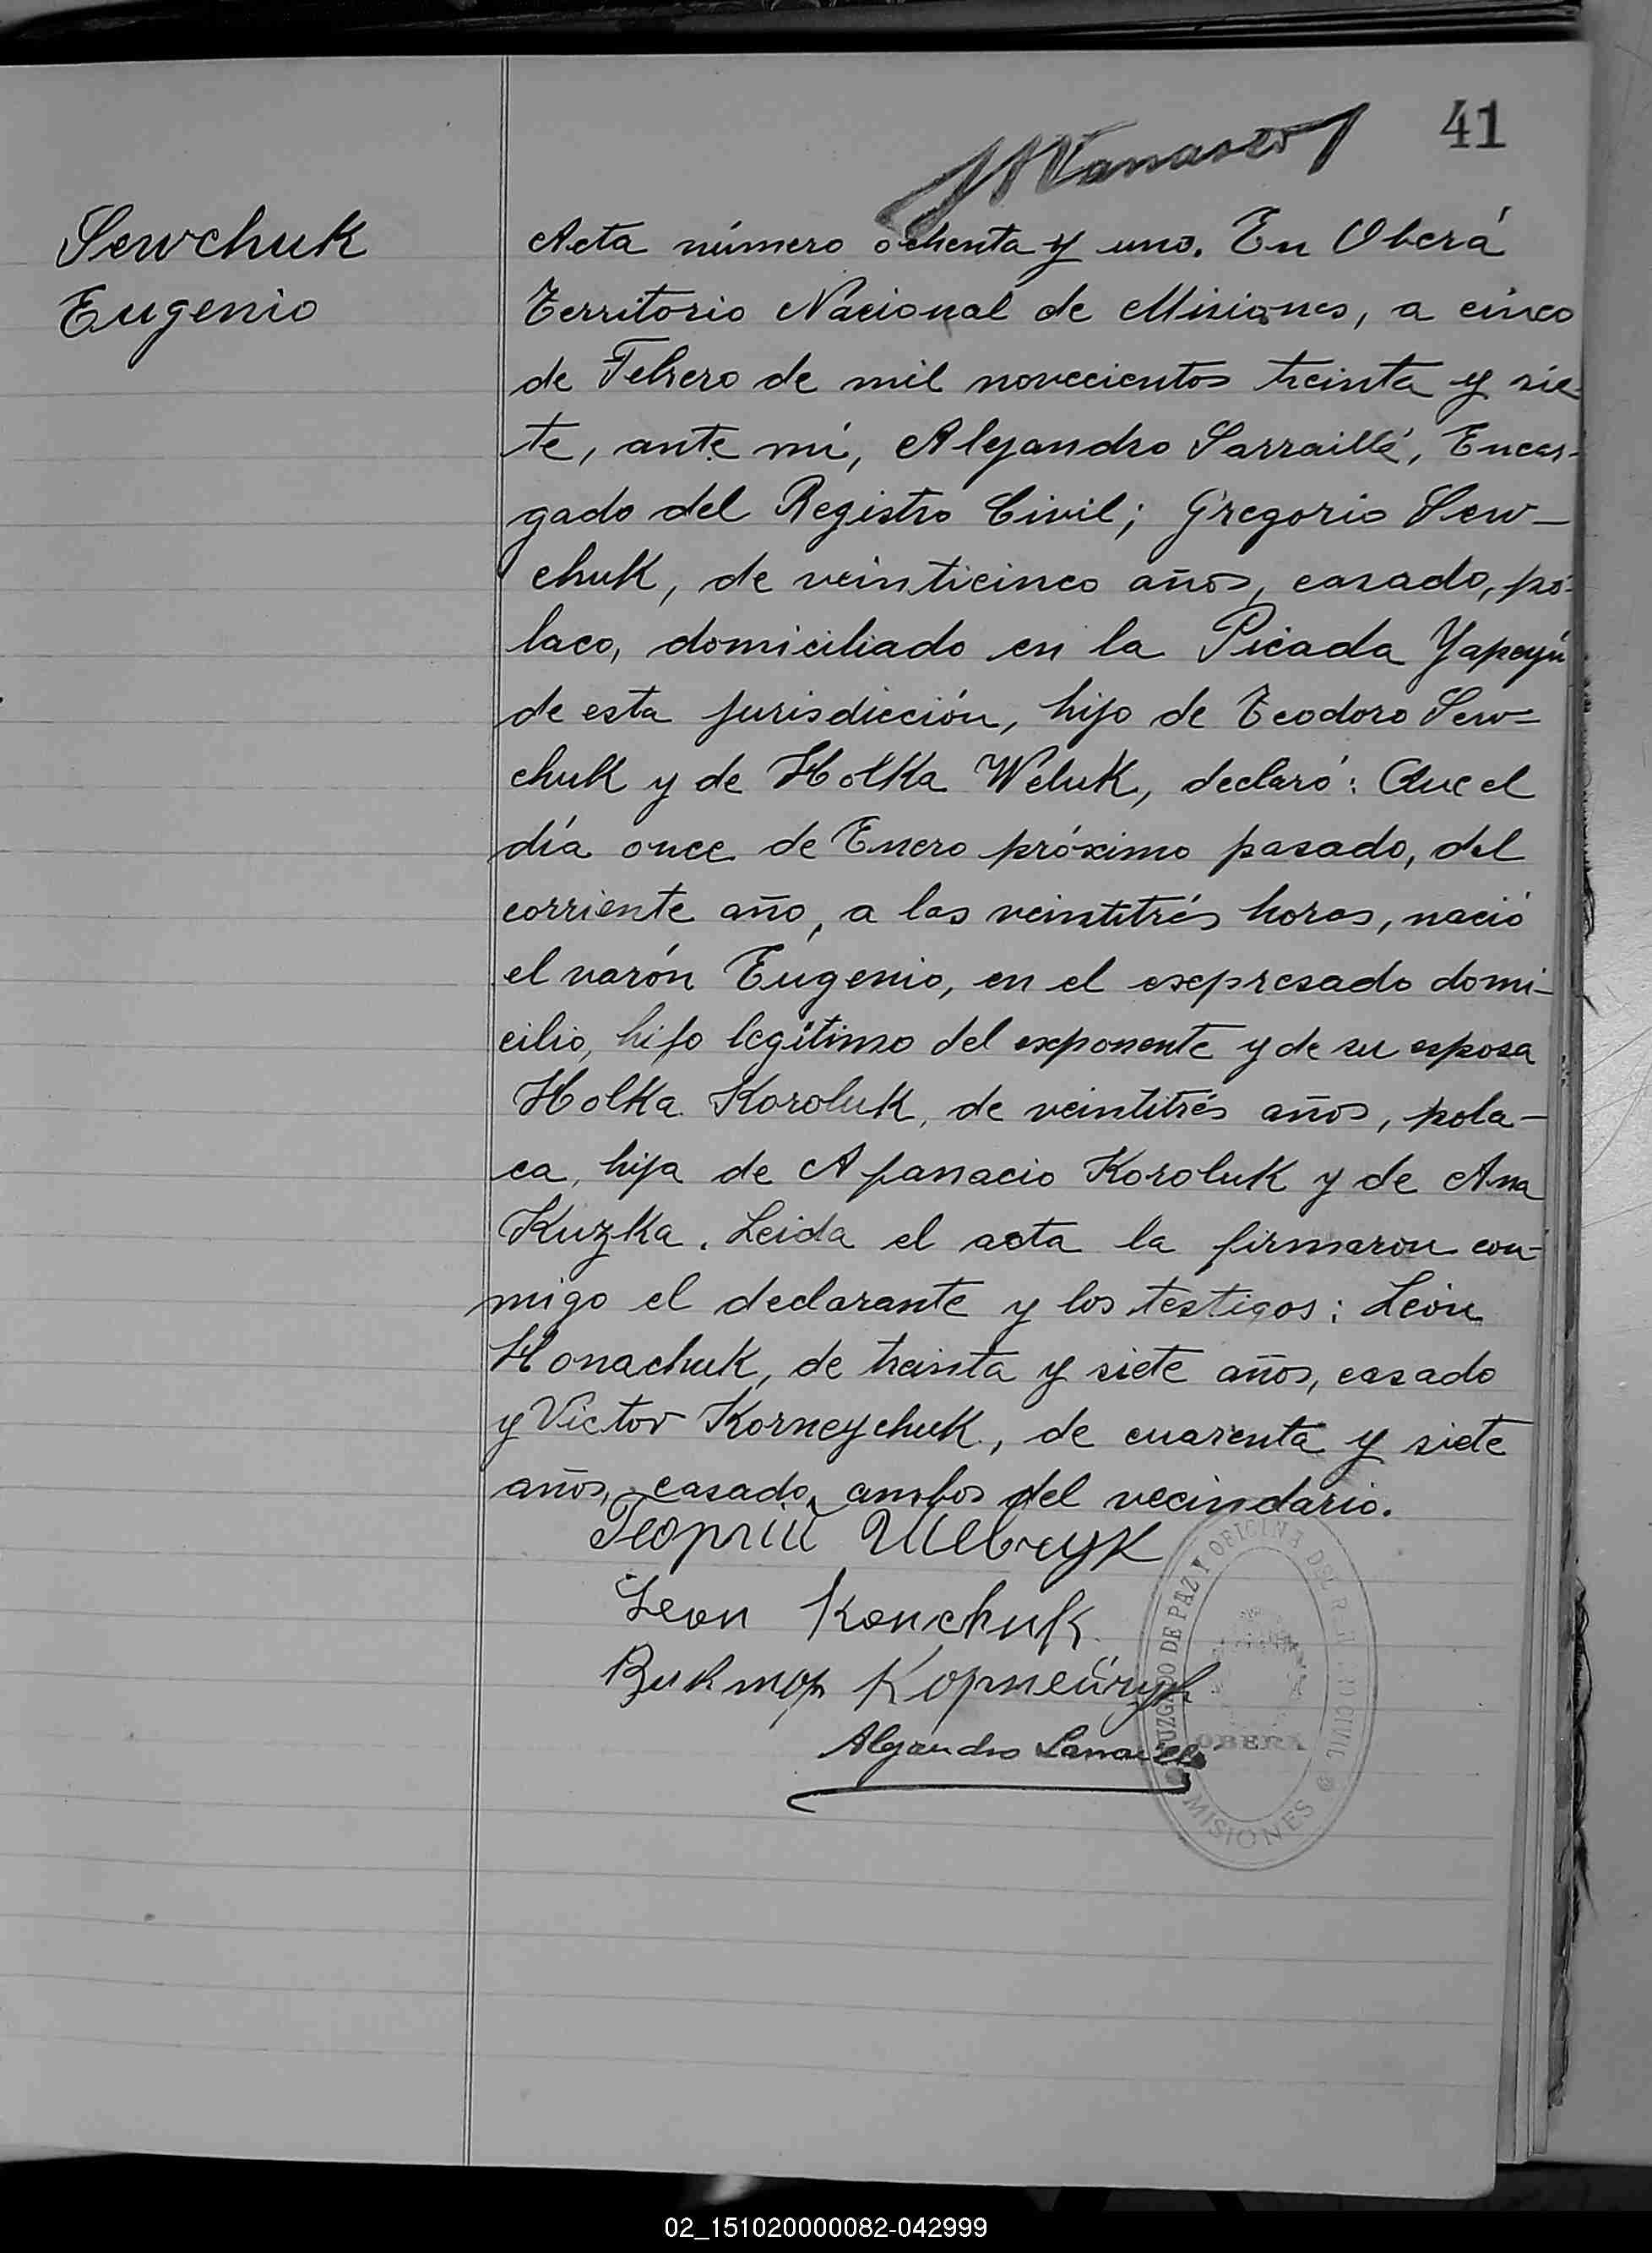 41
Sewchuk
Eugenio
Acta número ochenta y uno. En Oberá
Territorio Nacional de Misiones, a cinco
de Febrero de mil novecientos treinta y sie-
te, ante mí, Alejandro Sarraillé, Encar-
gado del Registro Civil; Gregorio Sew-
chuk, de veinticinco años, casado, po-
laco, domiciliado en la Picada Yapeyú
de esta jurisdicción, hijo de Teodoro Sew-
chuk y de Holka Weluk, declaró: Que el
día once de Enero próximo pasado, del
corriente año, a las veintitrés horas, nació
el varón Eugenio, en el expresado domi-
cilio, hijo legítimo del exponente y de su esposa
Holka Koroluk, de veintitrés años, pola-
ca, hija de Afanacio Koroluk y de Ana
Kuzka. Leida el acta la firmaron con-
migo el declarante y los testigos: León
Honachuk, de treinta y siete años, casado
y Victor Korneychuk, de cuarenta y siete
años, casado, ambos del vecindario.
Георгій Шевчук
Leon Konchuk
Виктор Корнейчук
Alejandro Sarraillé
JUZGADO DE PAZ Y OFICINA DEL R CIVIL
OBERA
MISIONES
02_151020000082-042999